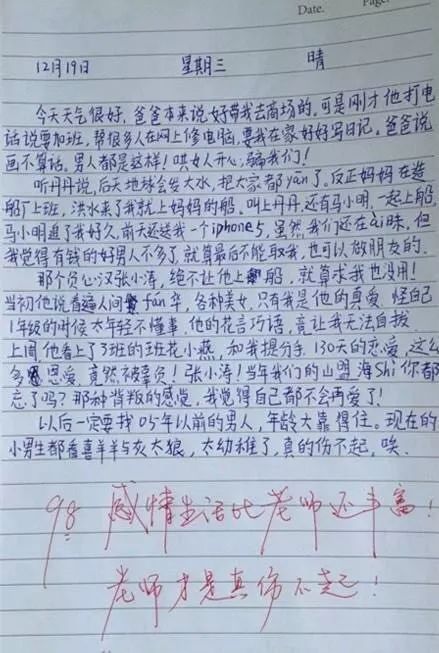 Date.
Page.
12月19日 星期三 晴
今天天气很好,爸爸本来说好带我去商场的,可是刚才他打电
话说要加班,帮很多人在网上修电脑,要我在家好好写日记。爸爸说
画不算话,男人都是这样!哄女人开心,骗我们!
听丹丹说,后天地球会发大水,把大家都yān了。反正妈妈在造
船厂上班,洪水来了我就上妈妈的船。叫上丹丹还有马小明,一起上船,
马小明追了我好久,前天还送我一个iphone5,虽然我们还在ài昧,但
我觉得有钱的好男人不多了,就算最后不能取我,也可以做朋友的。
那个负心汉张小涛,绝不让他上船,就算求我也没用!
当初他说看遍人间fán华,各种美女,只有我是他的真爱,怪自己
1年级的时候太年轻不懂事,他的花言巧语,竟让我无法自拔。
上周他看上了3班的班花小燕,和我提分手,130天的恋爱,这么
多恩爱,竟然被辜负!张小涛!当年我们的山盟海Shi你都
忘了吗?那种背叛的感觉,我觉得自己都不会再爱了!
以后一定要找05年以前的男人,年龄大靠得住。现在的
小男生都看喜羊羊与灰太狼,太幼稚了,真的伤不起,唉。
98 感情生活比老师还丰富!
老师才是真伤不起!